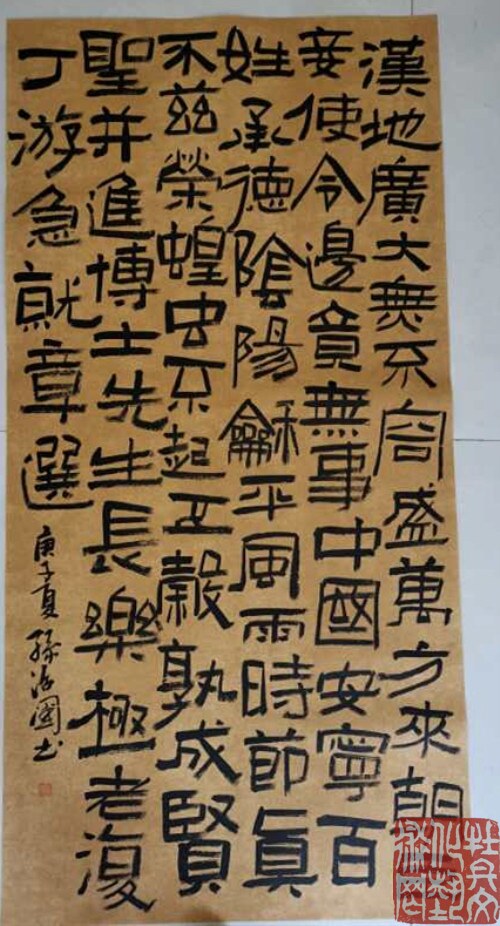 漢地廣大無不容盛萬方來朝
妾使令邊竟無事中國安寧百
姓承德陰陽龢平風雨時節莫
不茲榮蝗虫不起五穀孰成賢
聖并進博士先生長樂極老復
丁游急就章選
庚子夏孫國书